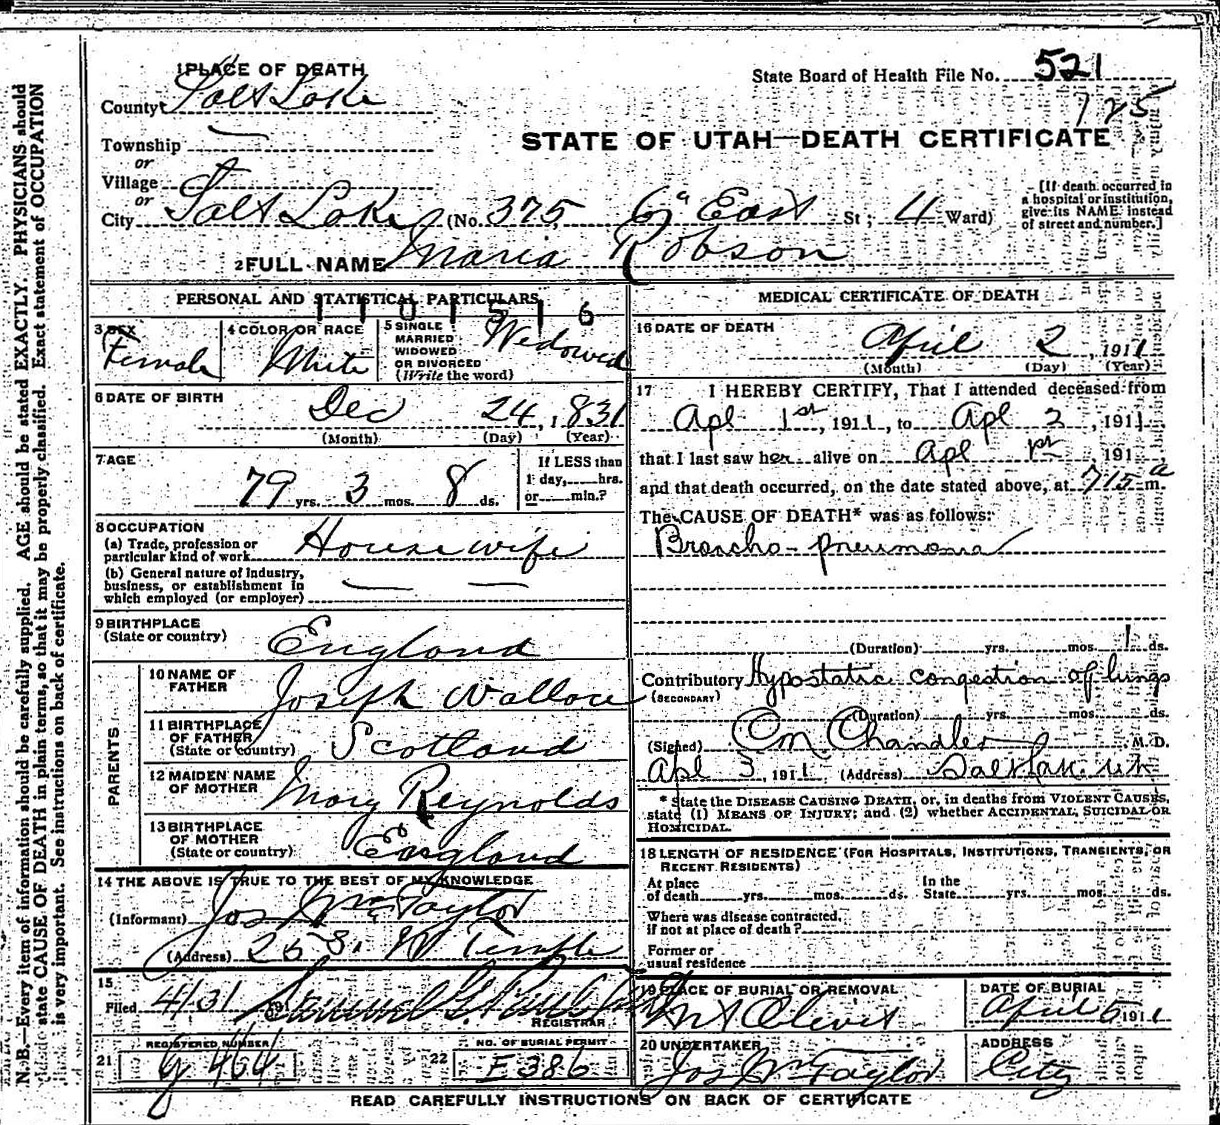 1 PLACE OF DEATH
State Board of Health File No. 521
County Salt Lake
125
STATE OF UTAH—DEATH CERTIFICATE
Township
or
Village
or
City Salt Lake (No. 375 6" East St; 4 Ward)
[If death occurred in
a hospital or institution,
give its NAME instead
of street and number.]
2 FULL NAME Maria Robson
PERSONAL AND STATISTICAL PARTICULARS
1101516
3 SEX
Female
4 COLOR OR RACE
White
5 SINGLE
MARRIED
WIDOWED
OR DIVORCED
(Write the word)
Widowed
6 DATE OF BIRTH
Dec 24, 1831
(Month) (Day) (Year)
7 AGE
79 yrs. 3 mos. 8 ds.
If LESS than
1 day,......hrs.
or......min.?
8 OCCUPATION
(a) Trade, profession or
particular kind of work Housewife
(b) General nature of industry,
business, or establishment in
which employed (or employer)
9 BIRTHPLACE
(State or country)
England
PARENTS
10 NAME OF
FATHER
Joseph Wallace
11 BIRTHPLACE
OF FATHER
(State or country)
Scotland
12 MAIDEN NAME
OF MOTHER
Mary Reynolds
13 BIRTHPLACE
OF MOTHER
(State or country)
England
14 THE ABOVE IS TRUE TO THE BEST OF MY KNOWLEDGE
(Informant) Jos Wm Taylor
(Address) 25 S. W Temple
15
Filed 4/3 1
REGISTRAR
REGISTERED NUMBER
21 464
NO. OF BURIAL PERMIT
22 E386
MEDICAL CERTIFICATE OF DEATH
16 DATE OF DEATH
April 2, 1911
(Month) (Day) (Year)
17 I HEREBY CERTIFY, That I attended deceased from
Apl 1st, 1911, to Apl 2, 1911.
that I last saw her alive on Apl 1st, 191
and that death occurred, on the date stated above, at 715 a m.
The CAUSE OF DEATH* was as follows:
Broncho-pneumonia
(Duration) yrs. mos. 1 ds.
Contributory Hypostatic congestion of lungs
(SECONDARY)
(Duration) yrs. mos. ds.
(Signed) CM Chandler M. D.
Apl 3, 1911 (Address) Salt Lake Utah
* State the DISEASE CAUSING DEATH, or, in deaths from VIOLENT CAUSES,
state (1) MEANS OF INJURY; and (2) whether ACCIDENTAL, SUICIDAL OR
HOMICIDAL.
18 LENGTH OF RESIDENCE (FOR HOSPITALS, INSTITUTIONS, TRANSIENTS, OR
RECENT RESIDENTS)
At place
of death......yrs......mos......ds.
In the
State......yrs......mos......ds.
Where was disease contracted,
if not at place of death?
Former or
usual residence
19 PLACE OF BURIAL OR REMOVAL
Mt Olivet
DATE OF BURIAL
April 5 1911
20 UNDERTAKER
Jos Wm Taylor
ADDRESS
City
READ CAREFULLY INSTRUCTIONS ON BACK OF CERTIFICATE
N. B.—Every item of information should be carefully supplied. AGE should be stated EXACTLY. PHYSICIANS should
state CAUSE OF DEATH in plain terms, so that it may be properly classified. Exact statement of OCCUPATION
is very important. See instructions on back of certificate.